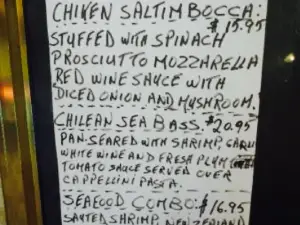 CHIKEN SALTIMBOCCA:
$15.95
STUFFED WITH SPINACH
PROSCIUTTO MOZZHRELLA
RED WINE SAUCE WITH
DICED ONION AND MUSHROOM.
CHILEAN SEA BASS: $20.95
PAN-SEARED WITH SHRIMP,
WHITE WINE AND FRESH PLUM
TOMATO SAUCE SERVED OVER
CAPPELLINI PASTA.
SEAFOOD COMBO: $16.95
SAUTED SHRIMP, NEW ZEALAND